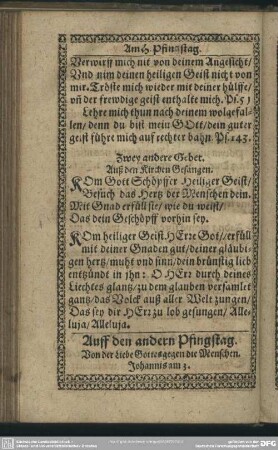 Am H. Pfingstag.
Verwirff mich nit von deinem Angesicht/
Vnd nim deinen heiligen Geist nicht von
mir. Tröste mich wieder mit deiner hülffe/
vñ der frewdige geist enthalte mich. Ps. 51
Lehre mich thun nach deinem wolgefal-
len/ denn du bist mein GOtt/ dein guter
geist führe mich auf rechter bahn. Ps. 143.
Zwey andere Gebet.
Auß den Kirchen Gesängen.
KOm Gott Schöpffer Heiliger Geist/
Besuch das Hertz der Menschen dein.
Mit Gnad erfüll sie/ wie du weist/
Das dein Geschöpff vorhin sey.
KOm heiliger Geist. HErre Gott/ erfüll
mit deiner Gnaden gut/ deiner gläubi-
gen hertz/ muht vnd sinn/ dein brünstig lieb
entzündt in jhn: O HErr durch deines
Liechtes glantz/ zu dem glauben versamlet
gantz/ das Volck auß aller Welt zungen/
Das sey dir HErr zu lob gesungen/ Alle-
luja/ Alleluja.
Auff den andern Pfingstag.
Von der Liebe Gottes gegen die Menschen.
Johannis am 3.